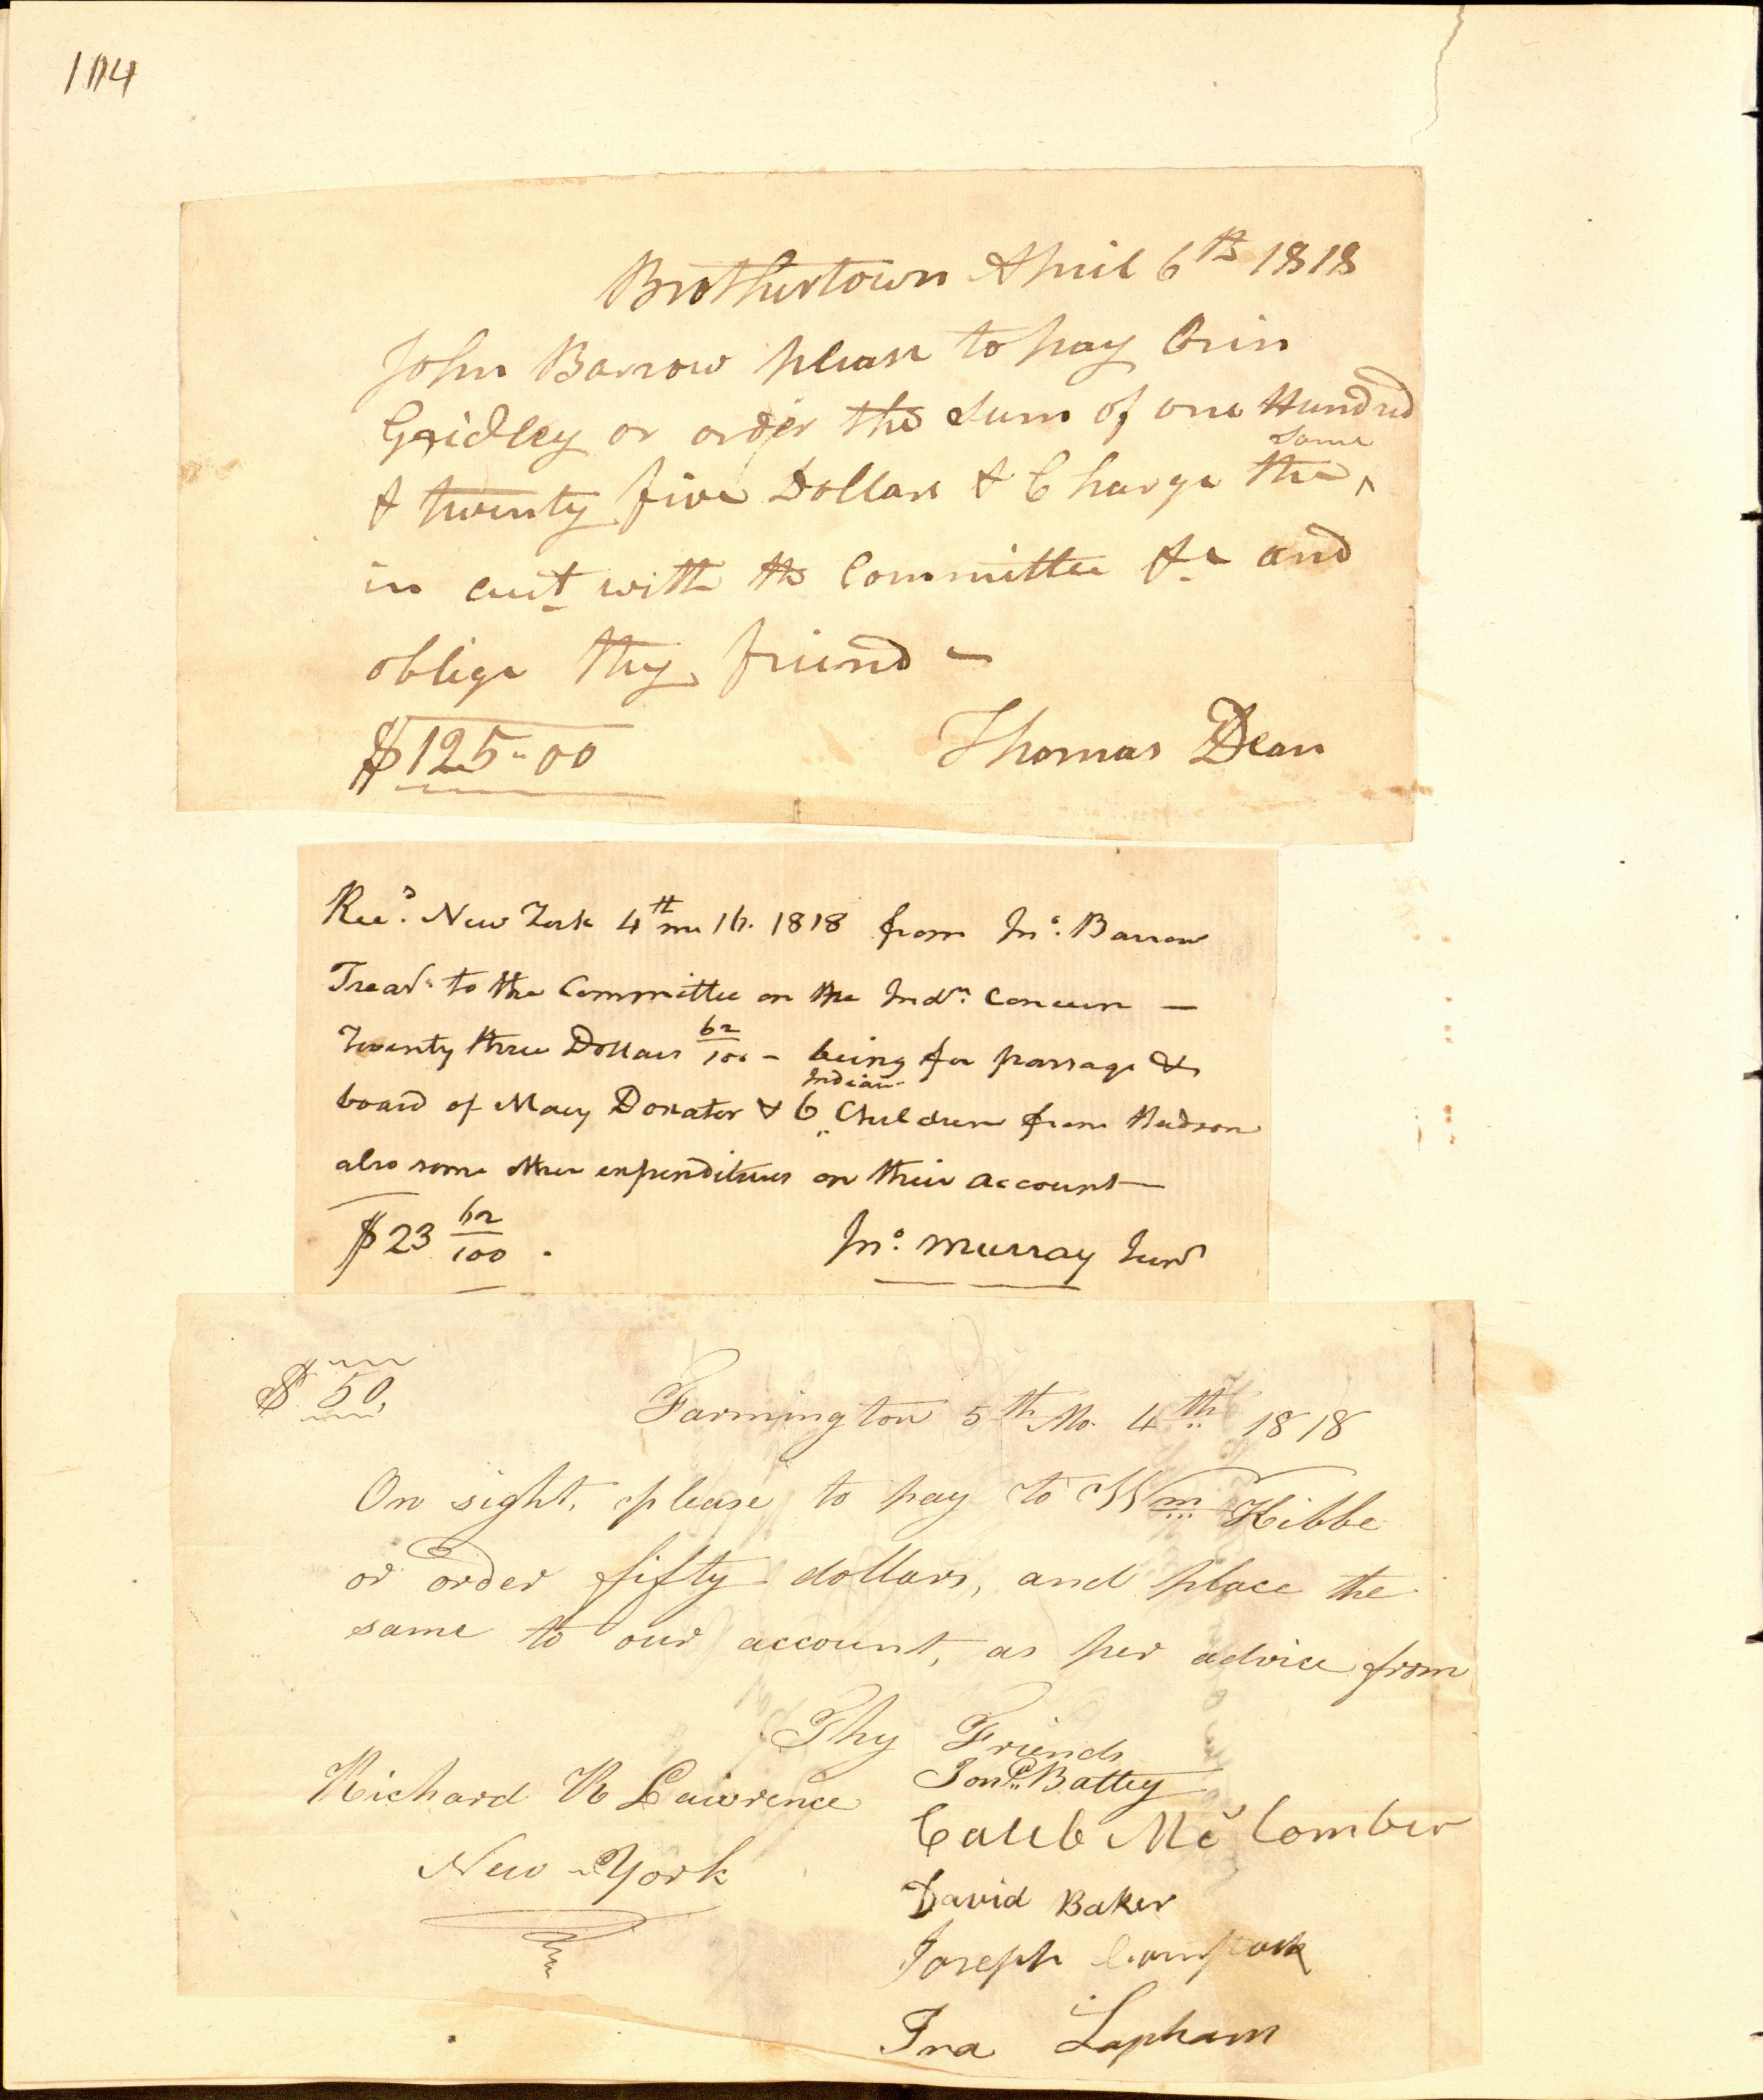 104
Brothertown April 6th 1818
John Barrow please to pay Orin
Gridley or order the sum of one Hundred
& twenty five Dollars & Charge the ^ same
in acct with the Committee &c and
oblige thy friend –
$125-00 Thomas Dean
Recd. New York 4th mo 16. 1818 from Jno. Barrow
Treasr. to the Committee on the Indn. Concern —
Twenty three Dollars 62/100 – being for passage &
board of Mary Donater & 6 Indian Children from Hudson
also some other expenditures on their account —
$23 62/100 . Jno. Murray Junr
$ 50. Farmington 5th Mo. 4th 1818
On sight, please to pay to Wm Kibbe
or order fifty dollars, and place the
same to our account, as per advice from
Thy Friends
Richard R Lawrence
New-York
Jona. Battey
Caleb Mc Comber
David Baker
Joseph Comstock
Ira Lapham